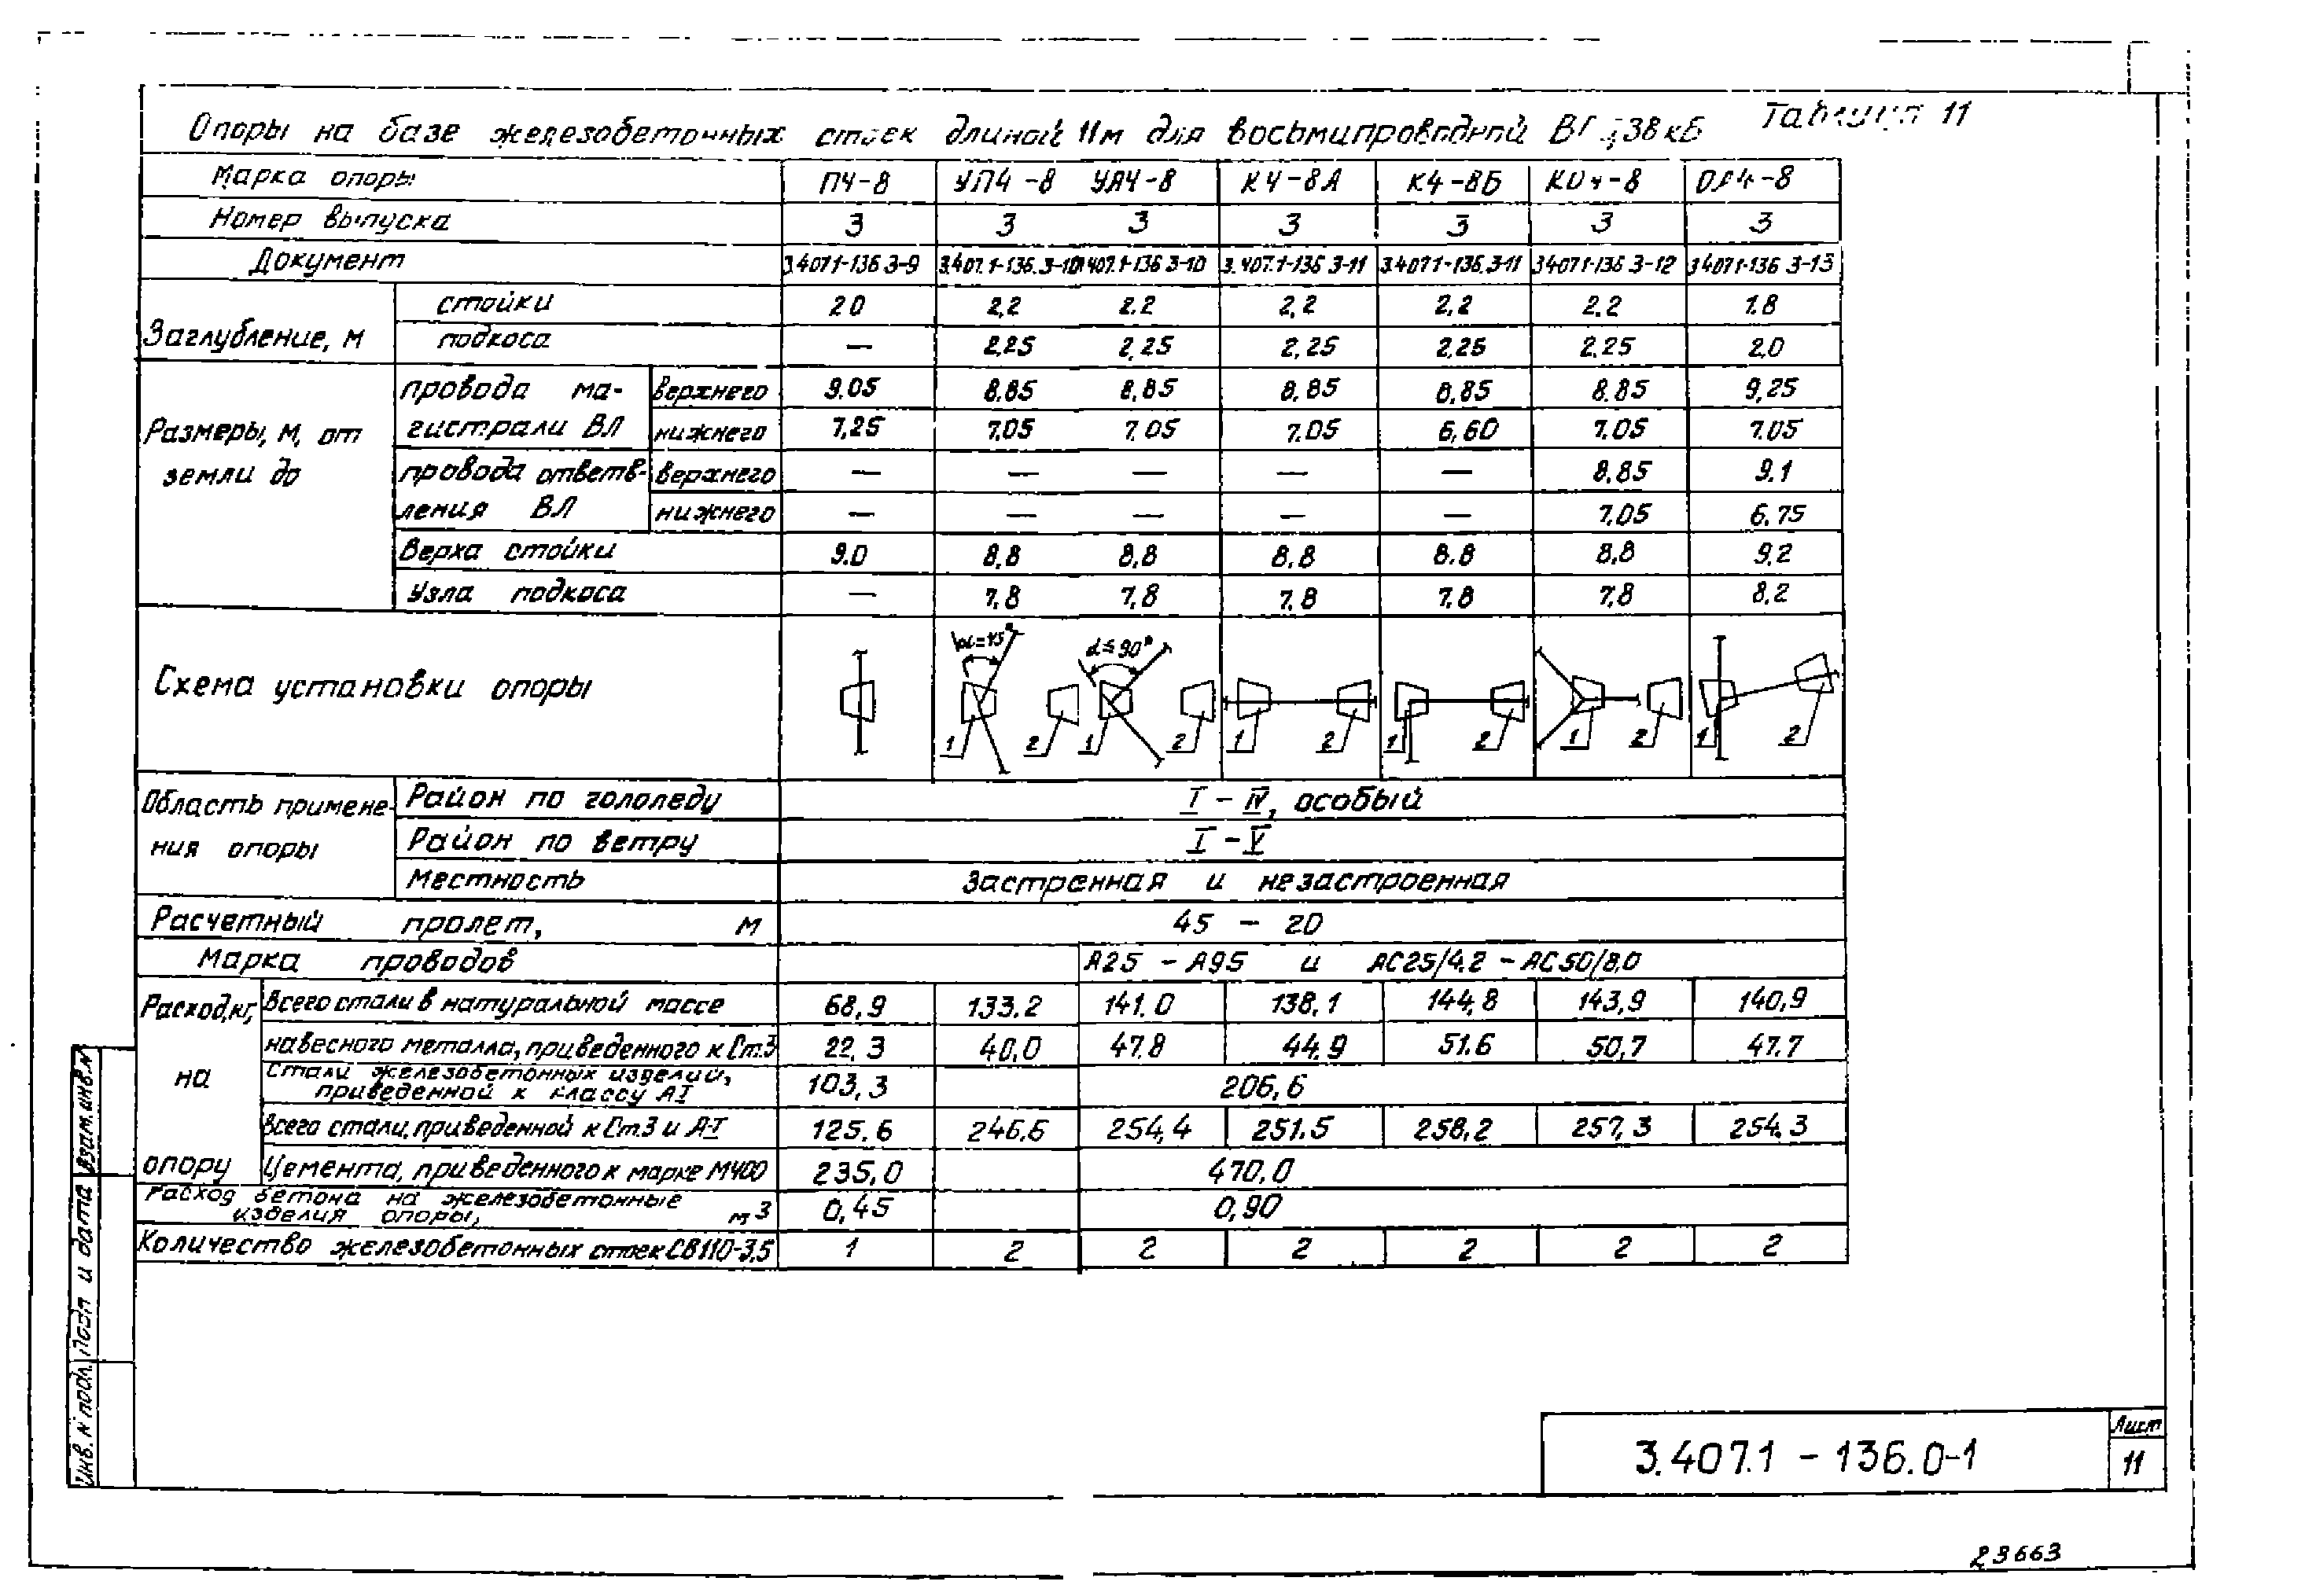 Таблица 11
Опоры на базе железобетонных стоек длиной 11м для восьмипроводной ВЛ 0,38 кВ
Марка опоры П4-8 УП4-8 УА4-8 К4-8А К4-8Б КО4-8 ОА4-8
Номер выпуска 3 3 3 3 3 3 3
Документ 3.407.1-136 3-9 3.407.1-136.3-10 3.407.1-136 3-10 3.407.1-136 3-11 3.407.1-136.3-11 3.407.1-136 3-12 3.407.1-136 3-13
Заглубление, м
стойки 2.0 2,2 2.2 2,2 2,2 2.2 1.8
подкоса — 2.25 2,25 2,25 2,25 2.25 2,0
Размеры, м, от земли до
провода магистрали ВЛ
верхнего 9.05 8.85 8,85 8,85 8,85 8.85 9,25
нижнего 7,25 7,05 7.05 7.05 6,60 7.05 7.05
провода ответвления ВЛ
верхнего — — — — — 8.85 9.1
нижнего — — — — — 7.05 6.75
Верха стойки 9.0 8,8 8,8 8,8 8.8 8,8 9,2
Узла подкоса — 7,8 7,8 7,8 7,8 7,8 8,2
Схема установки опоры
α=45° α≤90°
1 2 1 2 1 2 1 2 1 2 1 2
Область применения опоры
Район по гололеду I - IV, особый
Район по ветру I - V
Местность Застренная и незастроенная
Расчетный пролет, м 45 - 20
Марка проводов А25 - А95 и АС25/4,2 - АС50/8,0
Расход, кг, на опору
Всего стали в натуральной массе 68,9 133.2 141.0 138,1 144,8 143,9 140,9
навесного металла, приведенного к Ст.3 22,3 40,0 47.8 44,9 51.6 50,7 47.7
Стали железобетонных изделий, приведенной к классу АI 103,3 206,6
Всего стали, приведенной к Ст.3 и А-I 125.6 246,6 254,4 251.5 258,2 257,3 254.3
Цемента, приведенного к марке М400 235,0 470,0
Расход бетона на железобетонные изделия опоры, м3 0,45 0,90
Количество железобетонных стоек СВ110-3,5 1 2 2 2 2 2 2
Инв. N подл. Подп и дата Взам. инв. N
3.407.1 - 136.0-1
Лист
11
23663